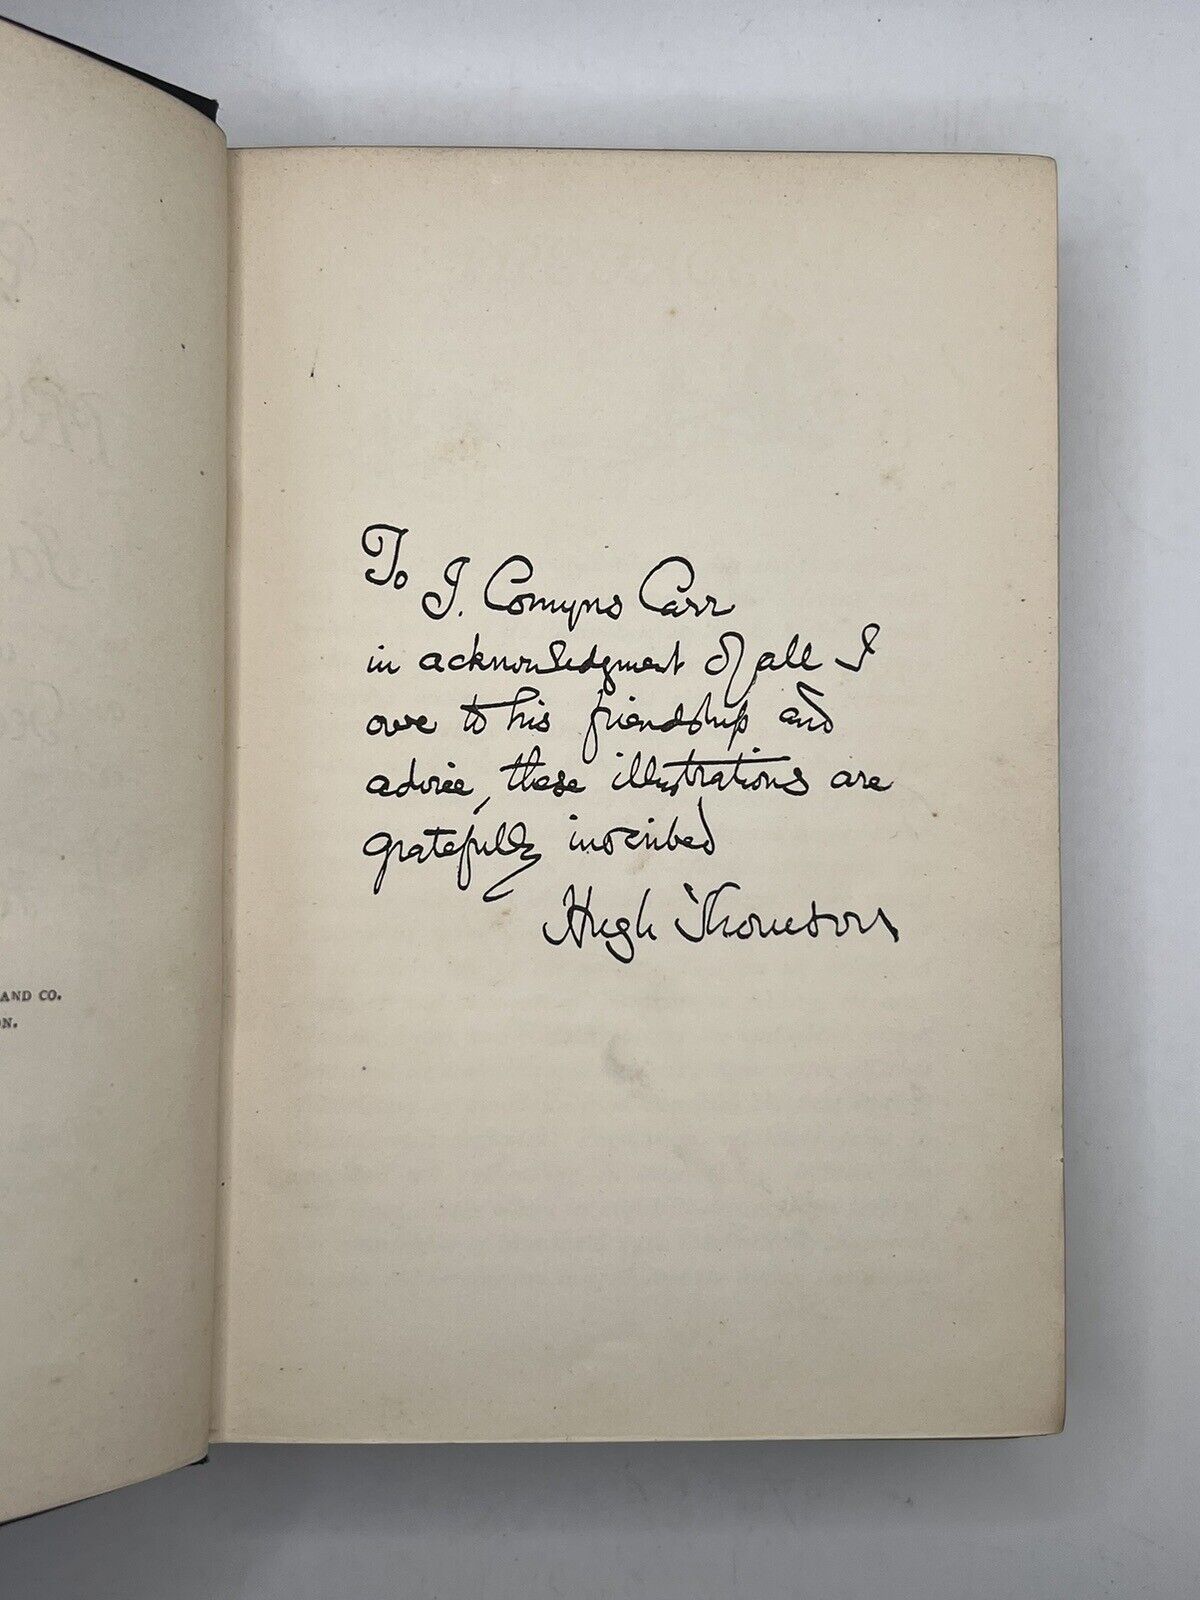 To
J. Comyns Carr
in acknowledgment of all I
owe to his friendship and
advice, these illustrations are
gratefully inscribed
Hugh Thomson
AND CO.
ON.